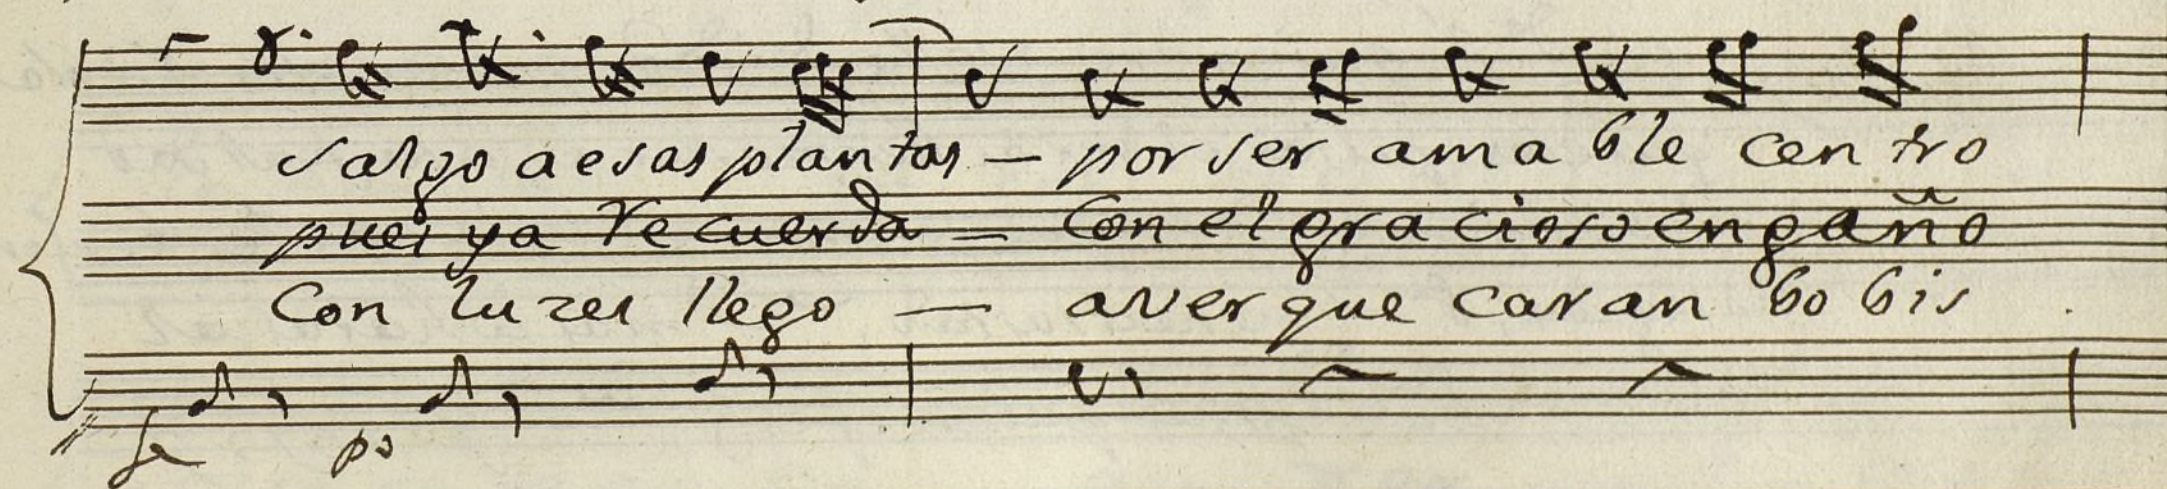 salgo a esas plantas — por ser ama ble cen tro
pues ya Recuerda — Con el gracioso engaño
Con luzes llego — aver que caran bobis
fe po